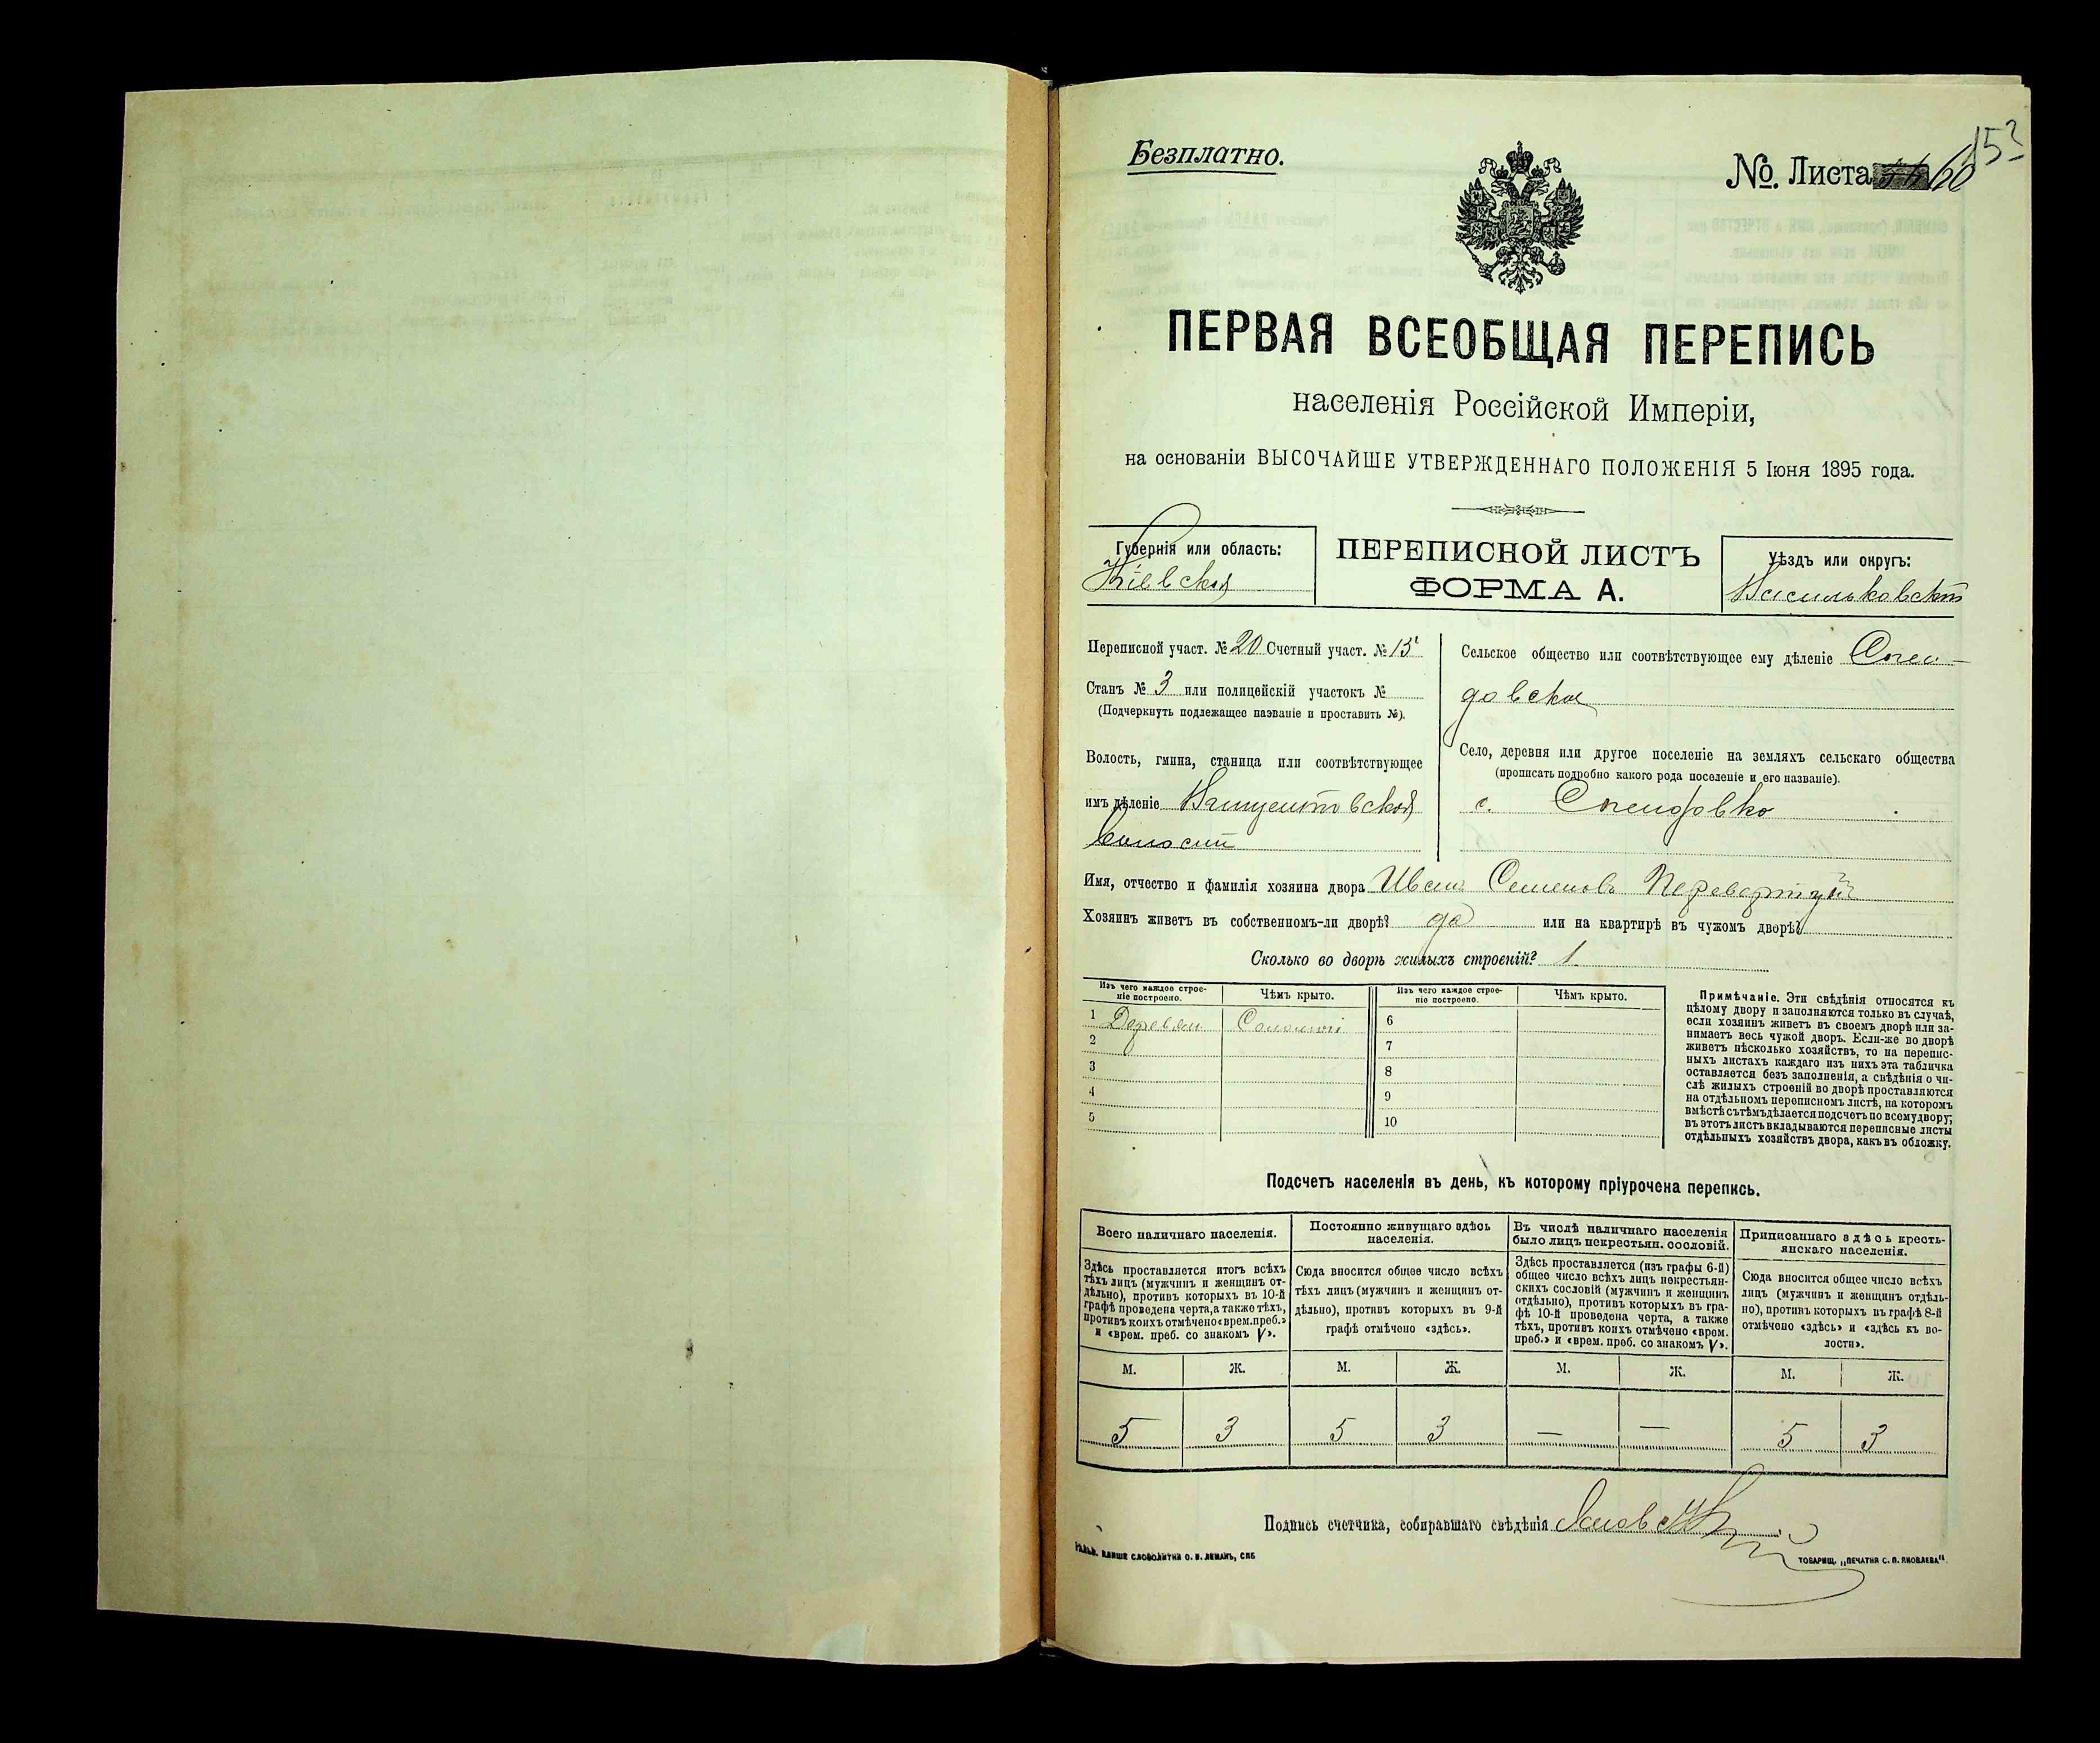 Безплатно.
№. Листа 60
153
ПЕРВАЯ ВСЕОБЩАЯ ПЕРЕПИСЬ
населенія Россійской Имперіи,
на основаніи ВЫСОЧАЙШЕ УТВЕРЖДЕННАГО ПОЛОЖЕНІЯ 5 Іюня 1895 года.
Губернія или область:
Кіевская
ПЕРЕПИСНОЙ ЛИСТЪ
ФОРМА А.
Уѣздъ или округъ:
Васильковскій
Переписной участ. № 20 Счетный участ. № 15
Станъ № 3 или полицейскій участокъ №
(Подчеркнуть подлежащее названіе и проставить №).
Волость, гмина, станица или соотвѣтствующее
имъ дѣленіе
волости
Сельское общество или соотвѣтствующее ему дѣленіе
довское
Село, деревня или другое поселеніе на земляхъ сельскаго общества
(прописать подробно какого рода поселеніе и его названіе).
с.
Имя, отчество и фамилія хозяина двора Иванъ Семеновъ
Хозяинъ живетъ въ собственномъ-ли дворѣ? да или на квартирѣ въ чужомъ дворѣ?
Сколько во дворѣ жилыхъ строеній? 1
Изъ чего каждое строе-
ніе построено.
Чѣмъ крыто.
Изъ чего каждое строе-
ніе построено.
Чѣмъ крыто.
1 Деревян Соломой
2
3
4
5
6
7
8
9
10
Примѣчаніе. Эти свѣдѣнія относятся къ
цѣлому двору и заполняются только въ случаѣ,
если хозяинъ живетъ въ своемъ дворѣ или за-
нимаетъ весь чужой дворъ. Если-же во дворѣ
живетъ нѣсколько хозяйствъ, то на перепис-
ныхъ листахъ каждаго изъ нихъ эта табличка
оставляется безъ заполненія, а свѣдѣнія о чи-
слѣ жилыхъ строеній во дворѣ проставляются
на отдѣльномъ переписномъ листѣ, на которомъ
вмѣстѣ съ тѣмъ дѣлается подсчетъ по всему двору;
въ этотъ листъ вкладываются переписные листы
отдѣльныхъ хозяйствъ двора, какъ въ обложку.
Подсчетъ населенія въ день, къ которому пріурочена перепись.
Всего наличнаго населенія.
Здѣсь проставляется итогъ всѣхъ
тѣхъ лицъ (мужчинъ и женщинъ от-
дѣльно), противъ которыхъ въ 10-й
графѣ проведена черта, а также тѣхъ,
противъ коихъ отмѣчено «врем. преб.»
и «врем. преб. со знакомъ V».
Постоянно живущаго здѣсь
населенія.
Сюда вносится общее число всѣхъ
тѣхъ лицъ (мужчинъ и женщинъ от-
дѣльно), противъ которыхъ въ 9-й
графѣ отмѣчено «здѣсь».
Въ числѣ наличнаго населенія
было лицъ некрестьян. сословій.
Здѣсь проставляется (изъ графы 6-й)
общее число всѣхъ лицъ некрестьян-
скихъ сословій (мужчинъ и женщинъ
отдѣльно), противъ которыхъ въ гра-
фѣ 10-й проведена черта, а также
тѣхъ, противъ коихъ отмѣчено «врем.
преб.» и «врем. преб. со знакомъ V».
Приписаннаго здѣсь кресть-
янскаго населенія.
Сюда вносится общее число всѣхъ
лицъ (мужчинъ и женщинъ отдѣль-
но), противъ которыхъ въ графѣ 8-й
отмѣчено «здѣсь» и «здѣсь къ во-
лости».
М. Ж. М. Ж. М. Ж. М. Ж.
5 3 5 3 — — 5 3
Подпись счетчика, собиравшаго свѣдѣнія
СЛОВОЛИТНИ О. И. ЛЕМАНЪ, СПБ
ТОВАРИЩ. „ПЕЧАТНЯ С. П. ЯКОВЛЕВА".